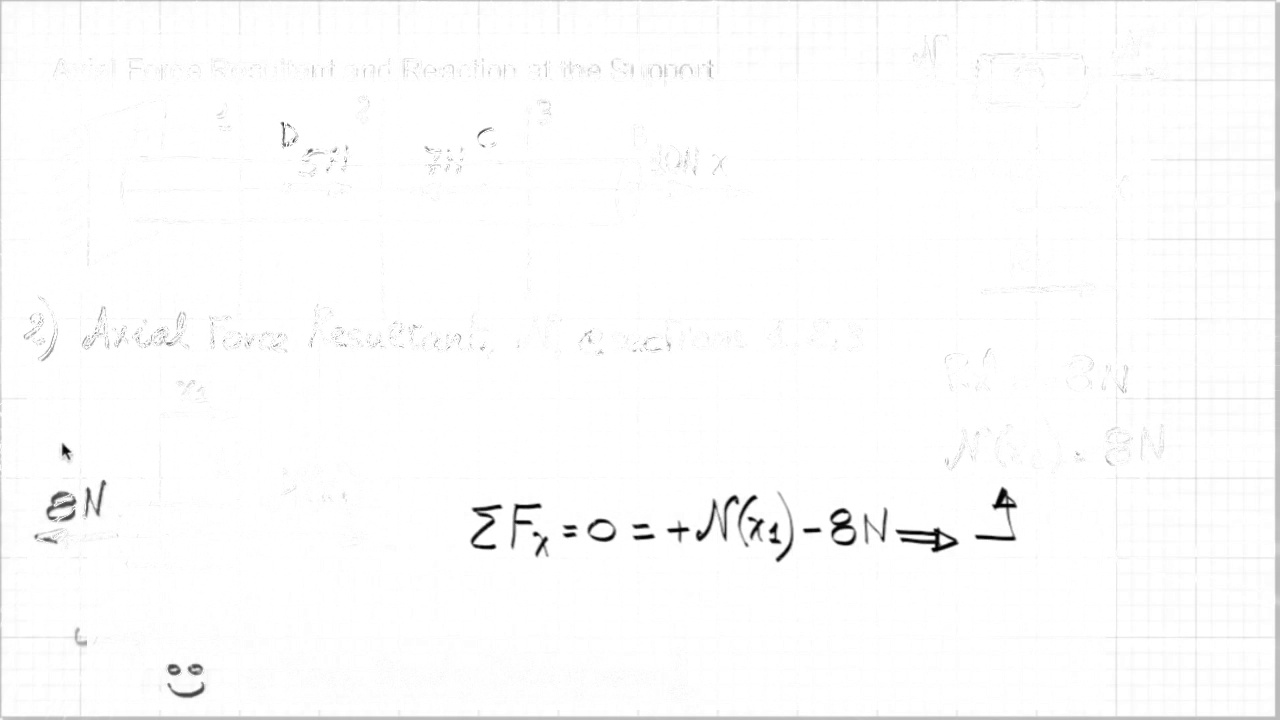 Axial Force Resultant and Reaction at the Support
N
1 2 3
D 5N 7N C B 10N x
2) Axial Force Resultant, N, @ sections 1, 2, 3
x₁
8N
N(x₁) = 8N
8N
ΣFₓ = 0 = +N(x₁) - 8N ⇒